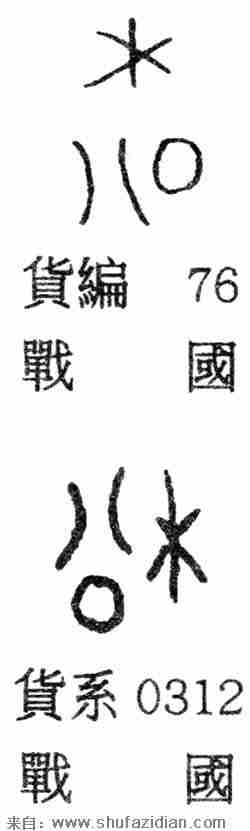 貨編 76
戰 國
貨系 0312
戰 國
来自: www.shufazidian.com